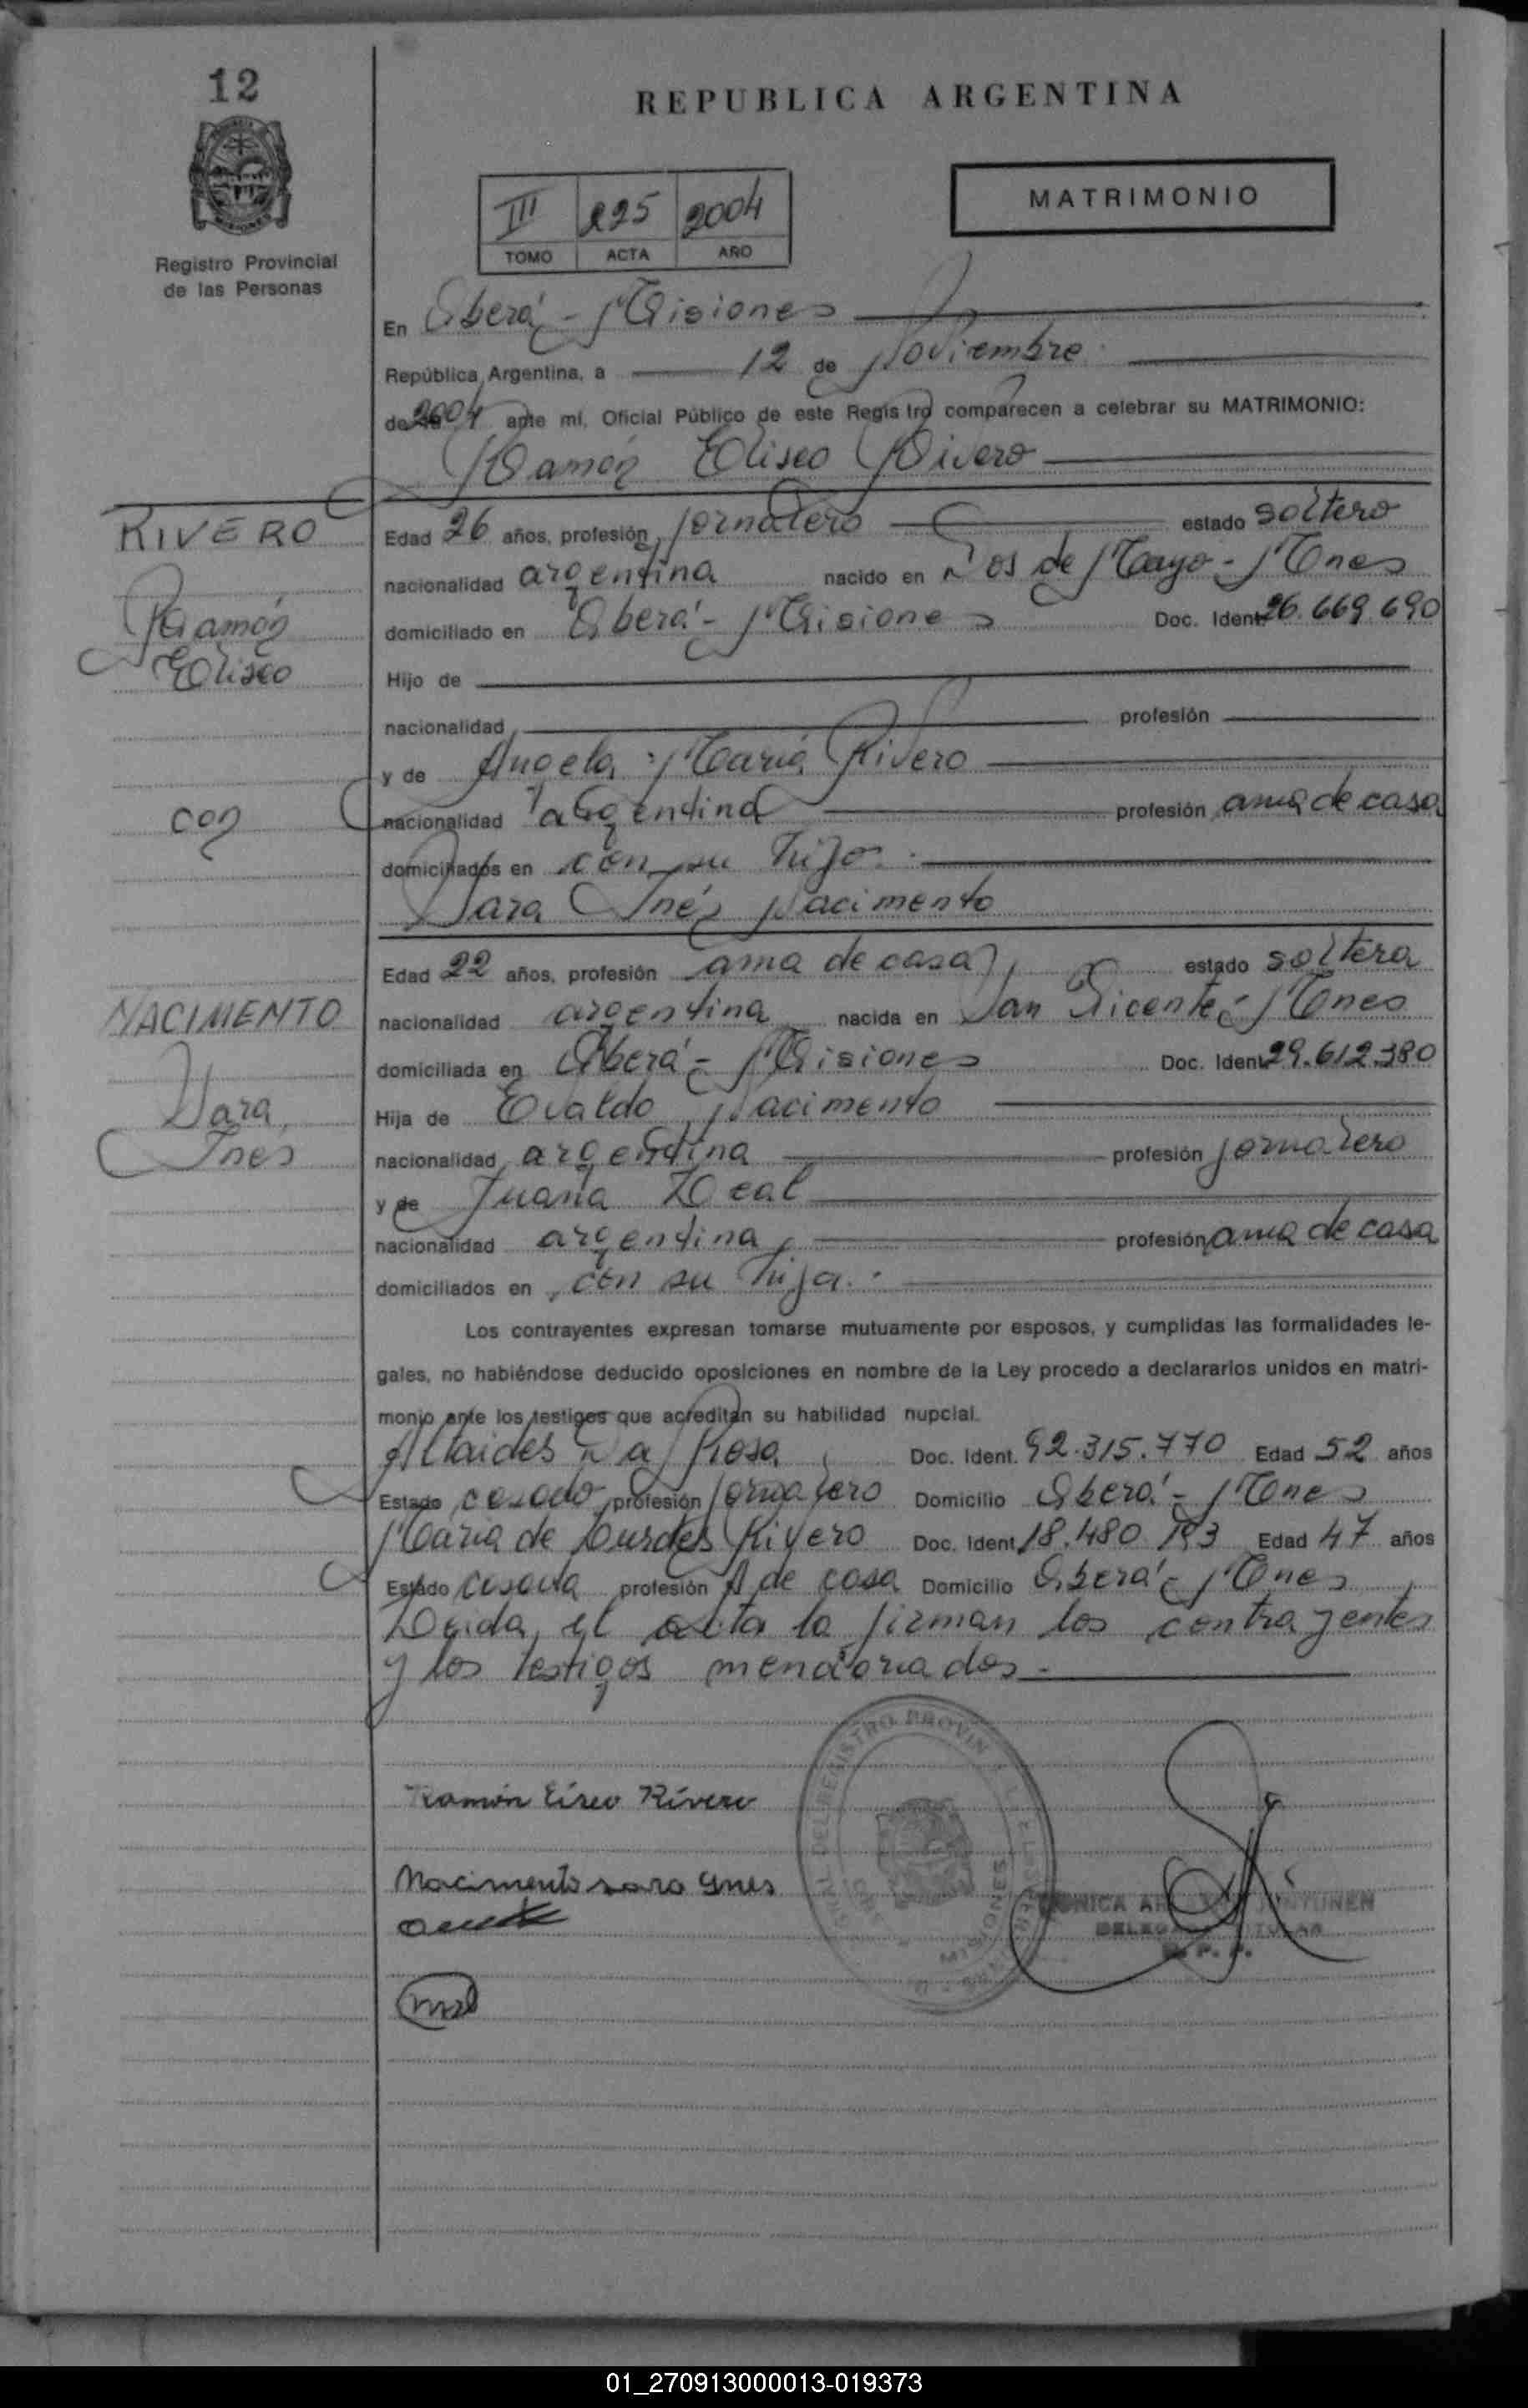 12
REPUBLICA ARGENTINA
MATRIMONIO
III 225 2004
TOMO ACTA AÑO
Registro Provincial
de las Personas
En Oberá - Misiones
República Argentina, a 12 de Noviembre
de 2004 ante mí, Oficial Público de este Registro comparecen a celebrar su MATRIMONIO:
Ramón Eliseo Rivero
RIVERO
Ramón
Eliseo
con
NACIMENTO
Sara
Inés
Edad 26 años, profesión jornalero estado soltero
nacionalidad argentina nacido en Dos de Mayo - Mnes
domiciliado en Oberá - Misiones Doc. Ident. 26.669.690
Hijo de
nacionalidad profesión
y de Angela María Rivero
nacionalidad argentina profesión ama de casa
domiciliados en con su hijo.
Sara Inés Nacimento
Edad 22 años, profesión ama de casa estado soltera
nacionalidad argentina nacida en San Vicente - Mnes
domiciliada en Oberá - Misiones Doc. Ident. 29.612.380
Hija de Evaldo Nacimento
nacionalidad argentina profesión jornalero
y de Juana Leal
nacionalidad argentina profesión ama de casa
domiciliados en con su hija.
Los contrayentes expresan tomarse mutuamente por esposos, y cumplidas las formalidades le-
gales, no habiéndose deducido oposiciones en nombre de la Ley procedo a declararlos unidos en matri-
monio ante los testigos que acreditan su habilidad nupcial.
Alcaides Da Rosa Doc. Ident. 92.315.770 Edad 52 años
Estado casado profesión jornalero Domicilio Oberá - Mnes
María de Lurdes Rivero Doc. Ident. 18.480.193 Edad 47 años
Estado casada profesión A de casa Domicilio Oberá - Mnes
Leida el acta la firman los contrayentes
y los testigos mencionados.
Ramón Eliseo Rivero
Nacimento sara ynes
MISIONES
01_270913000013-019373